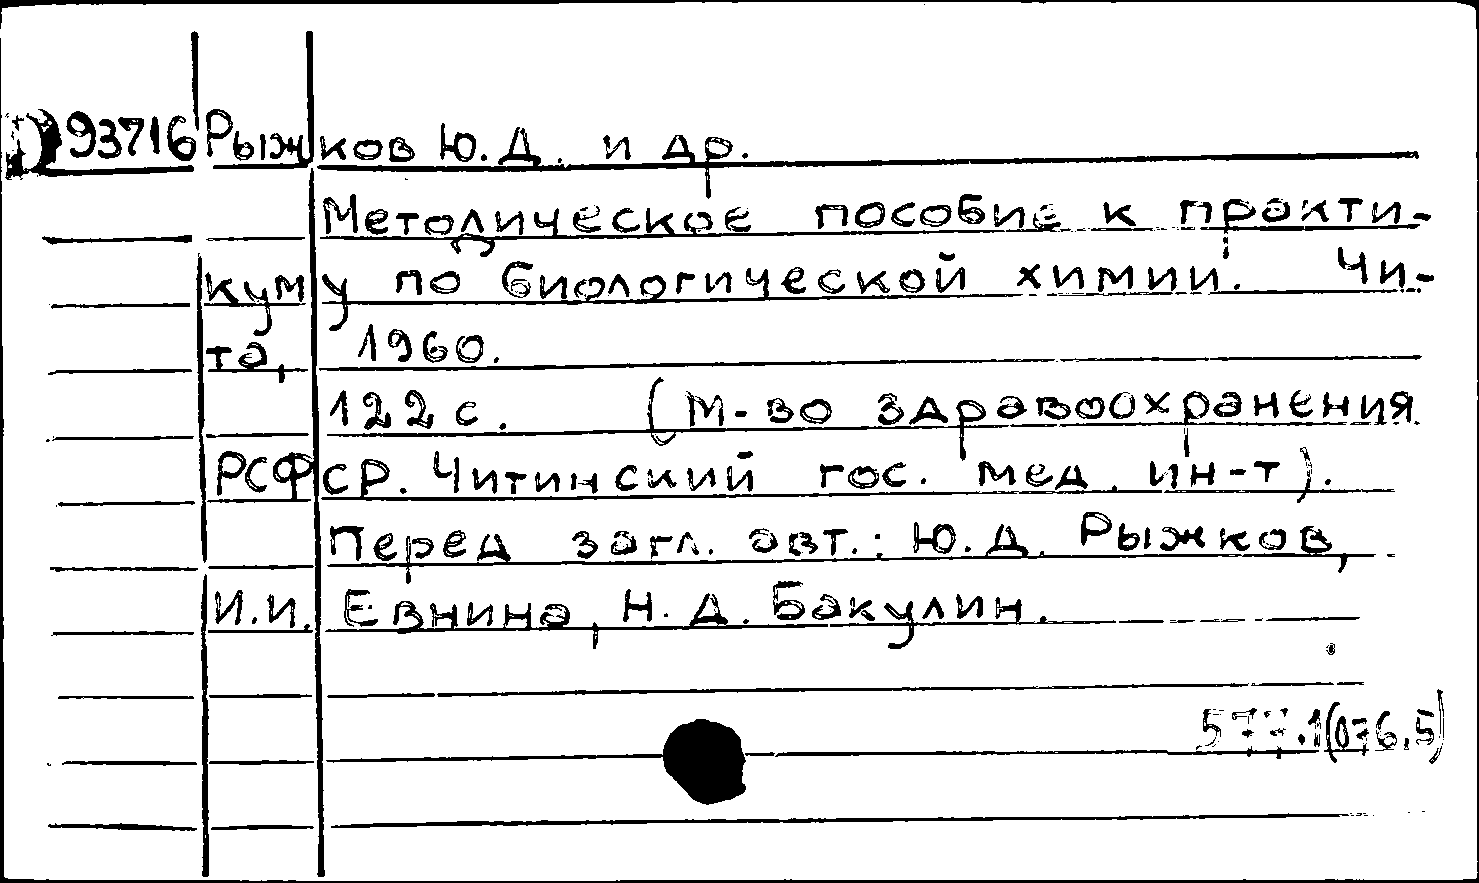 93716 Рыжков Ю.Д. и др.
Методическое пособие к практи-
куму по биологической химии. Чи-
та, 1960.
122 с. (М-во здравоохранения
РСФСР. Читинский гос. мед. ин-т).
Перед загл. авт.: Ю.Д. Рыжков,
И.И. Евнина, Н.Д. Бакулин.
577.1(076.5)